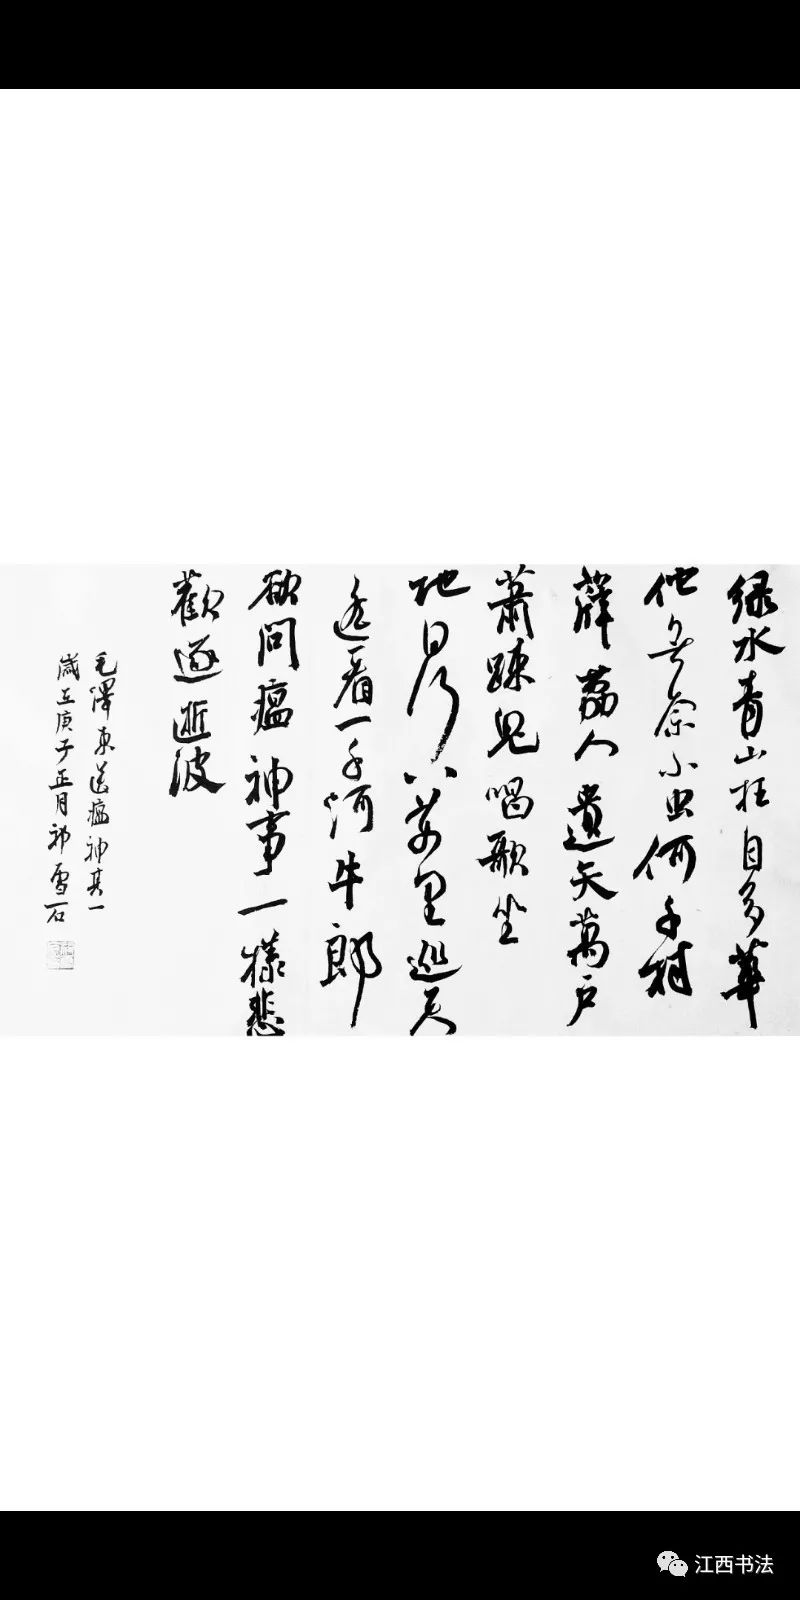 绿水青山枉自多華
佗無奈小虫何千村
薜荔人遺矢萬户
蕭踈鬼唱歌坐
地日行八萬里巡天
遥看一千河牛郎
欲問瘟神事一樣悲
歡逐逝波
毛澤東送瘟神其一
歲在庚子正月祁雪石
江西书法